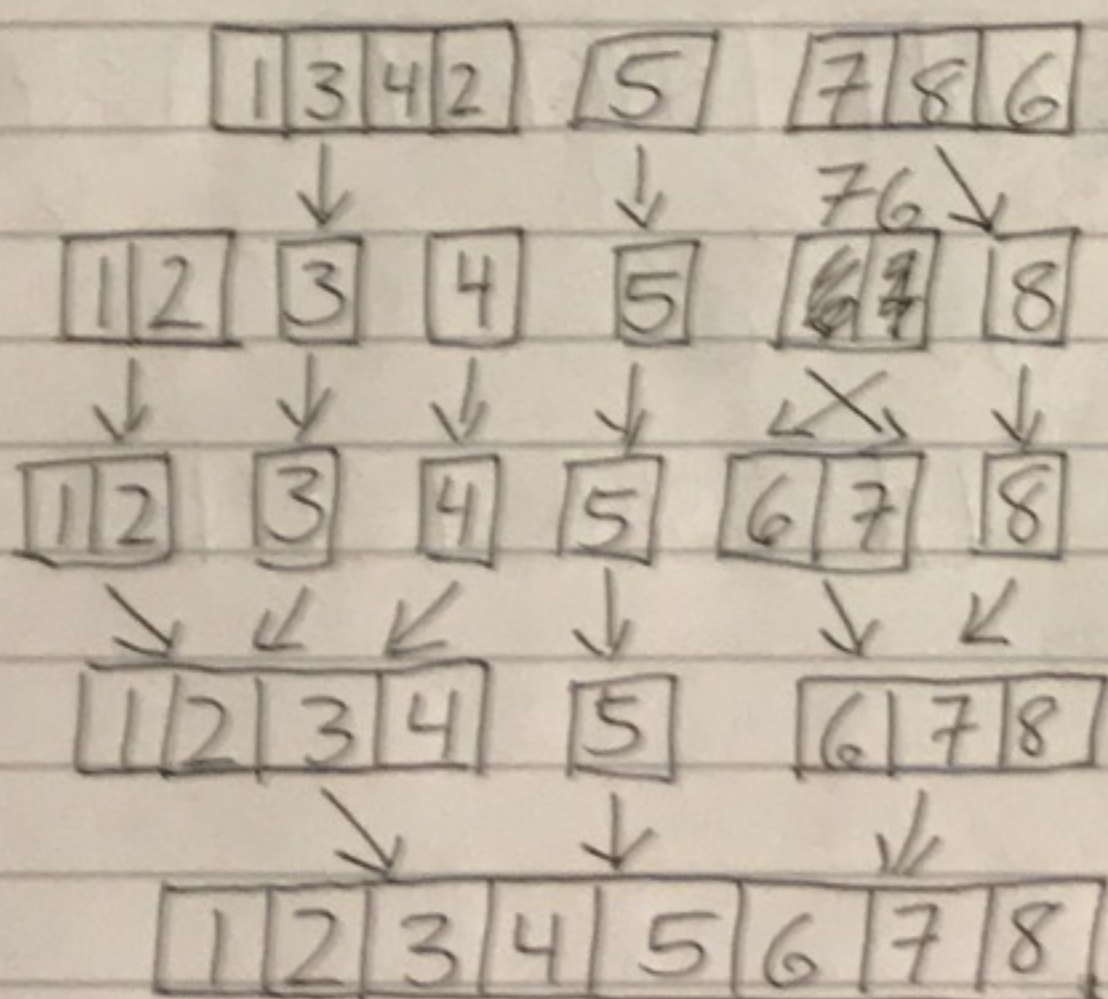 1 3 4 2 5 7 8 6
7 6
1 2 3 4 5 8
1 2 3 4 5 6 7 8
1 2 3 4 5 6 7 8
1 2 3 4 5 6 7 8